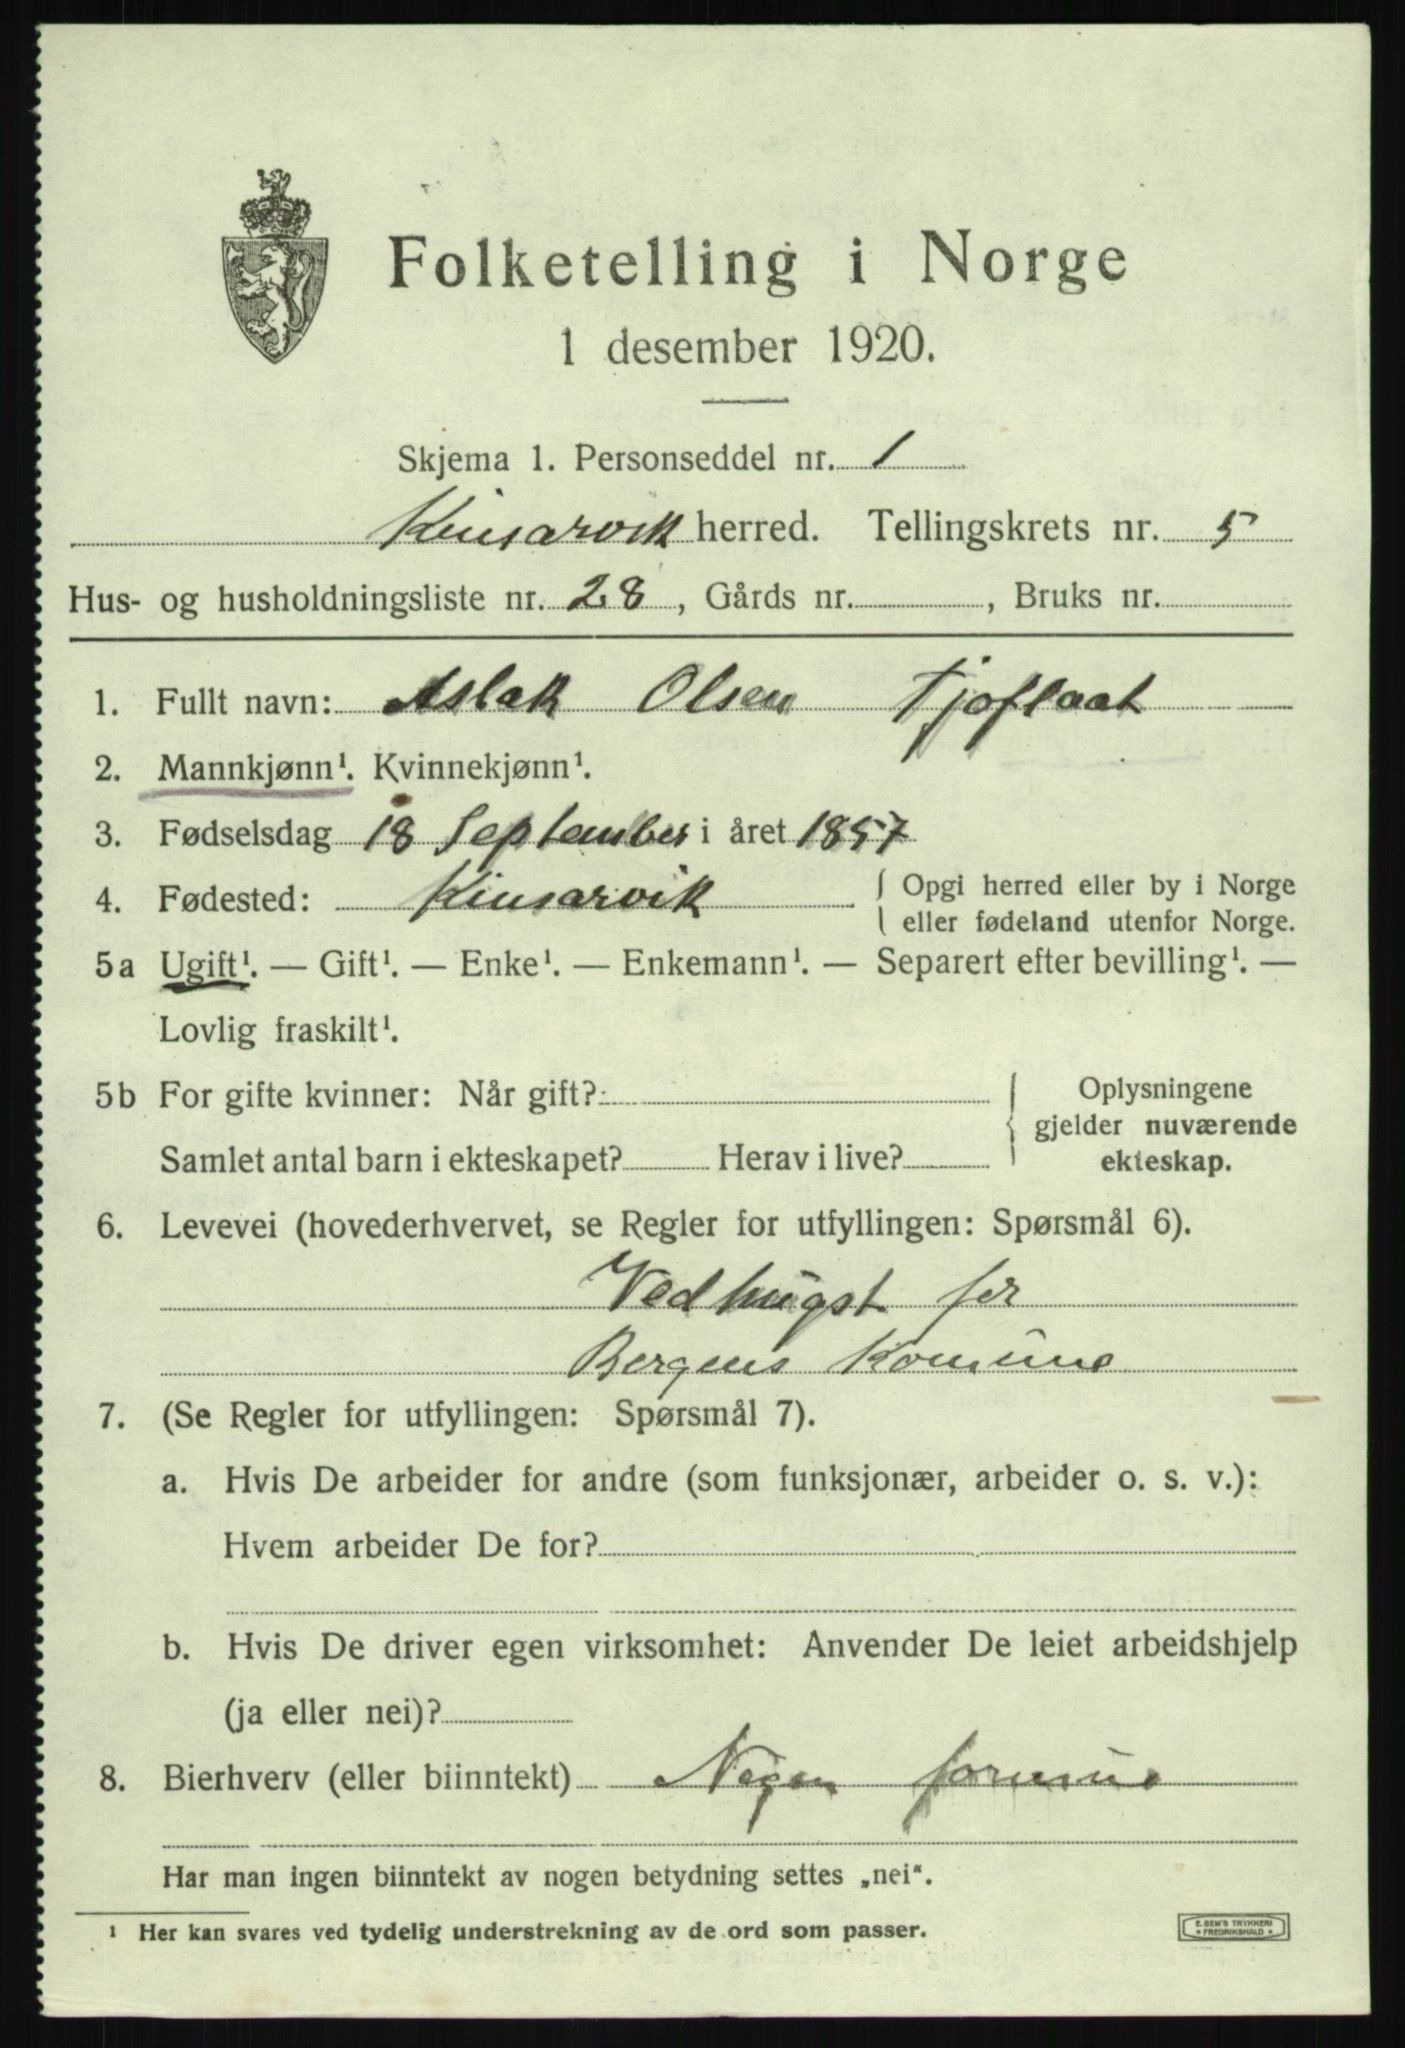 Folketelling i Norge
1 desember 1920.
Skjema 1. Personseddel nr. 1
Kinsarvik herred. Tellingskrets nr. 5
Hus- og husholdningsliste nr. 28, Gårds nr. , Bruks nr.
1. Fullt navn: Aslak Olsen Tjoflaat
2. Mannkjønn¹. Kvinnekjønn¹.
3. Fødselsdag 18 September i året 1857
4. Fødested: Kinsarvik { Opgi herred eller by i Norge
eller fødeland utenfor Norge.
5a Ugift¹. — Gift¹. — Enke¹. — Enkemann¹. — Separert efter bevilling¹. —
Lovlig fraskilt¹.
5b For gifte kvinner: Når gift? } Oplysningene
gjelder nuværende
Samlet antal barn i ekteskapet? Herav i live? ekteskap.
6. Levevei (hovederhvervet, se Regler for utfyllingen: Spørsmål 6).
Vedhugst for
Bergens Komune
7. (Se Regler for utfyllingen: Spørsmål 7).
a. Hvis De arbeider for andre (som funksjonær, arbeider o. s. v.):
Hvem arbeider De for?
b. Hvis De driver egen virksomhet: Anvender De leiet arbeidshjelp
(ja eller nei)?
8. Bierhverv (eller biinntekt) Nogen formue
Har man ingen biinntekt av nogen betydning settes „nei“.
¹ Her kan svares ved tydelig understrekning av de ord som passer.
E. SEM'S TRYKKERI
* FREDRIKSHALD *